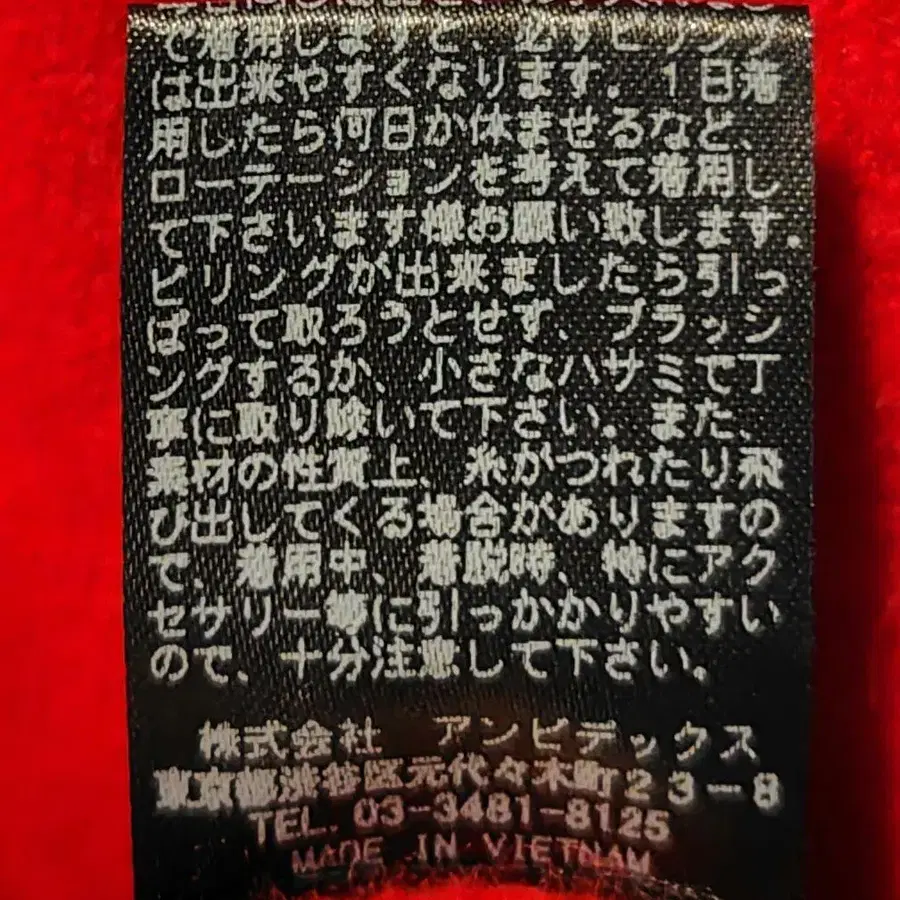 で着用しますと、必ずピリング
は出来やすくなります。1日着
用したら何日か休ませるなど、
ローテーションを考えて着用し
て下さいます様お願い致します。
ピリングが出来ましたら引っ
ぱって取ろうとせず、ブラッシ
ングするか、小さなハサミで丁
寧に取り除いて下さい。また、
素材の性質上、糸がつれたり飛
び出してくる場合がありますの
で、着用中、着脱時、特にアク
セサリー等に引っかかりやすい
ので、十分注意して下さい。
株式会社 アンビデックス
東京都渋谷区元代々木町23-8
TEL. 03-3481-8125
MADE IN VIETNAM